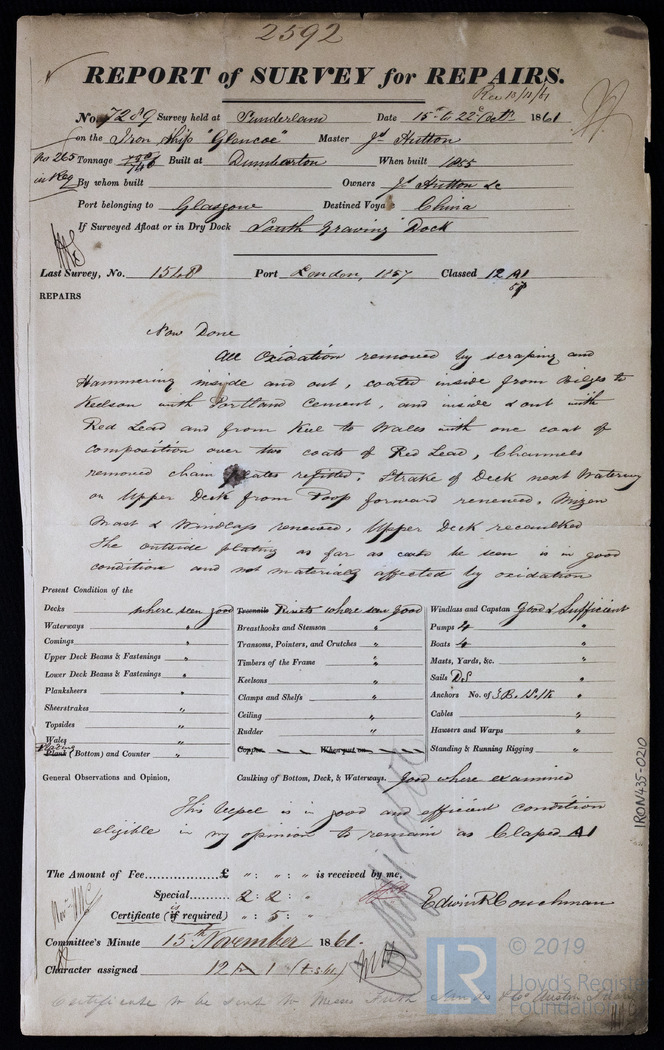 2592
REPORT of SURVEY for REPAIRS.
Rec 13/11/61
No. 7289 Survey held at Sunderland Date 15th to 22d Octr 1861
on the Iron Ship "Glencoe" Master Jd Hutton
No 265 in Reg
Tonnage 750/740 Built at Dumbarton When built 1855
By whom built Owners Jd Hutton &c
Port belonging to Glasgow Destined Voyage China
If Surveyed Afloat or in Dry Dock South Graving Dock
Last Survey, No. 1548 Port London, 1857 Classed 12 A1
57
REPAIRS
Now Done
All Oxidation removed by scraping and
Hammering inside and out, coated inside from Bilges to
Keelson with Portland Cement, and inside & out with
Red Lead and from Keel to Wales with one coat of
composition over two coats of Red Lead, Channels
removed chain plates refitted. Strake of Deck next Waterway
on Upper Deck from Poop forward renewed, Mizen
Mast & Windlass renewed, Upper Deck recaulked
The outside plating as far as could be seen is in good
condition and not materially affected by oxidation
Present Condition of the
Decks where seen good
Waterways "
Comings "
Upper Deck Beams & Fastenings "
Lower Deck Beams & Fastenings "
Planksheers "
Sheerstrakes "
Topsides "
Wales "
Plating
Plank (Bottom) and Counter "
Treenails Rivets where seen good
Breasthooks and Stemson "
Transoms, Pointers, and Crutches "
Timbers of the Frame "
Keelsons "
Clamps and Shelfs "
Ceiling "
Rudder "
Copper When put on
Windlass and Capstan Good & Sufficient
Pumps 4 "
Boats 4 "
Masts, Yards, &c. "
Sails "
Anchors No. of 3 B. "
Cables "
Hawsers and Warps "
Standing & Running Rigging "
General Observations and Opinion, Caulking of Bottom, Deck, & Waterways. Good where examined
This Vessel is in good and efficient condition
eligible in my opinion to remain as Classed A1
The Amount of Fee £ " : " : " is received by me,
Special 2 : 2 : "
Certificate (if required) " : 5 : "
Edwin R Couchman
Committee's Minute 15th November 1861
Character assigned 12 A 1
Certificate to be sent to Messrs
IRON435-0210
LR © 2019
Lloyd's Register
Foundation